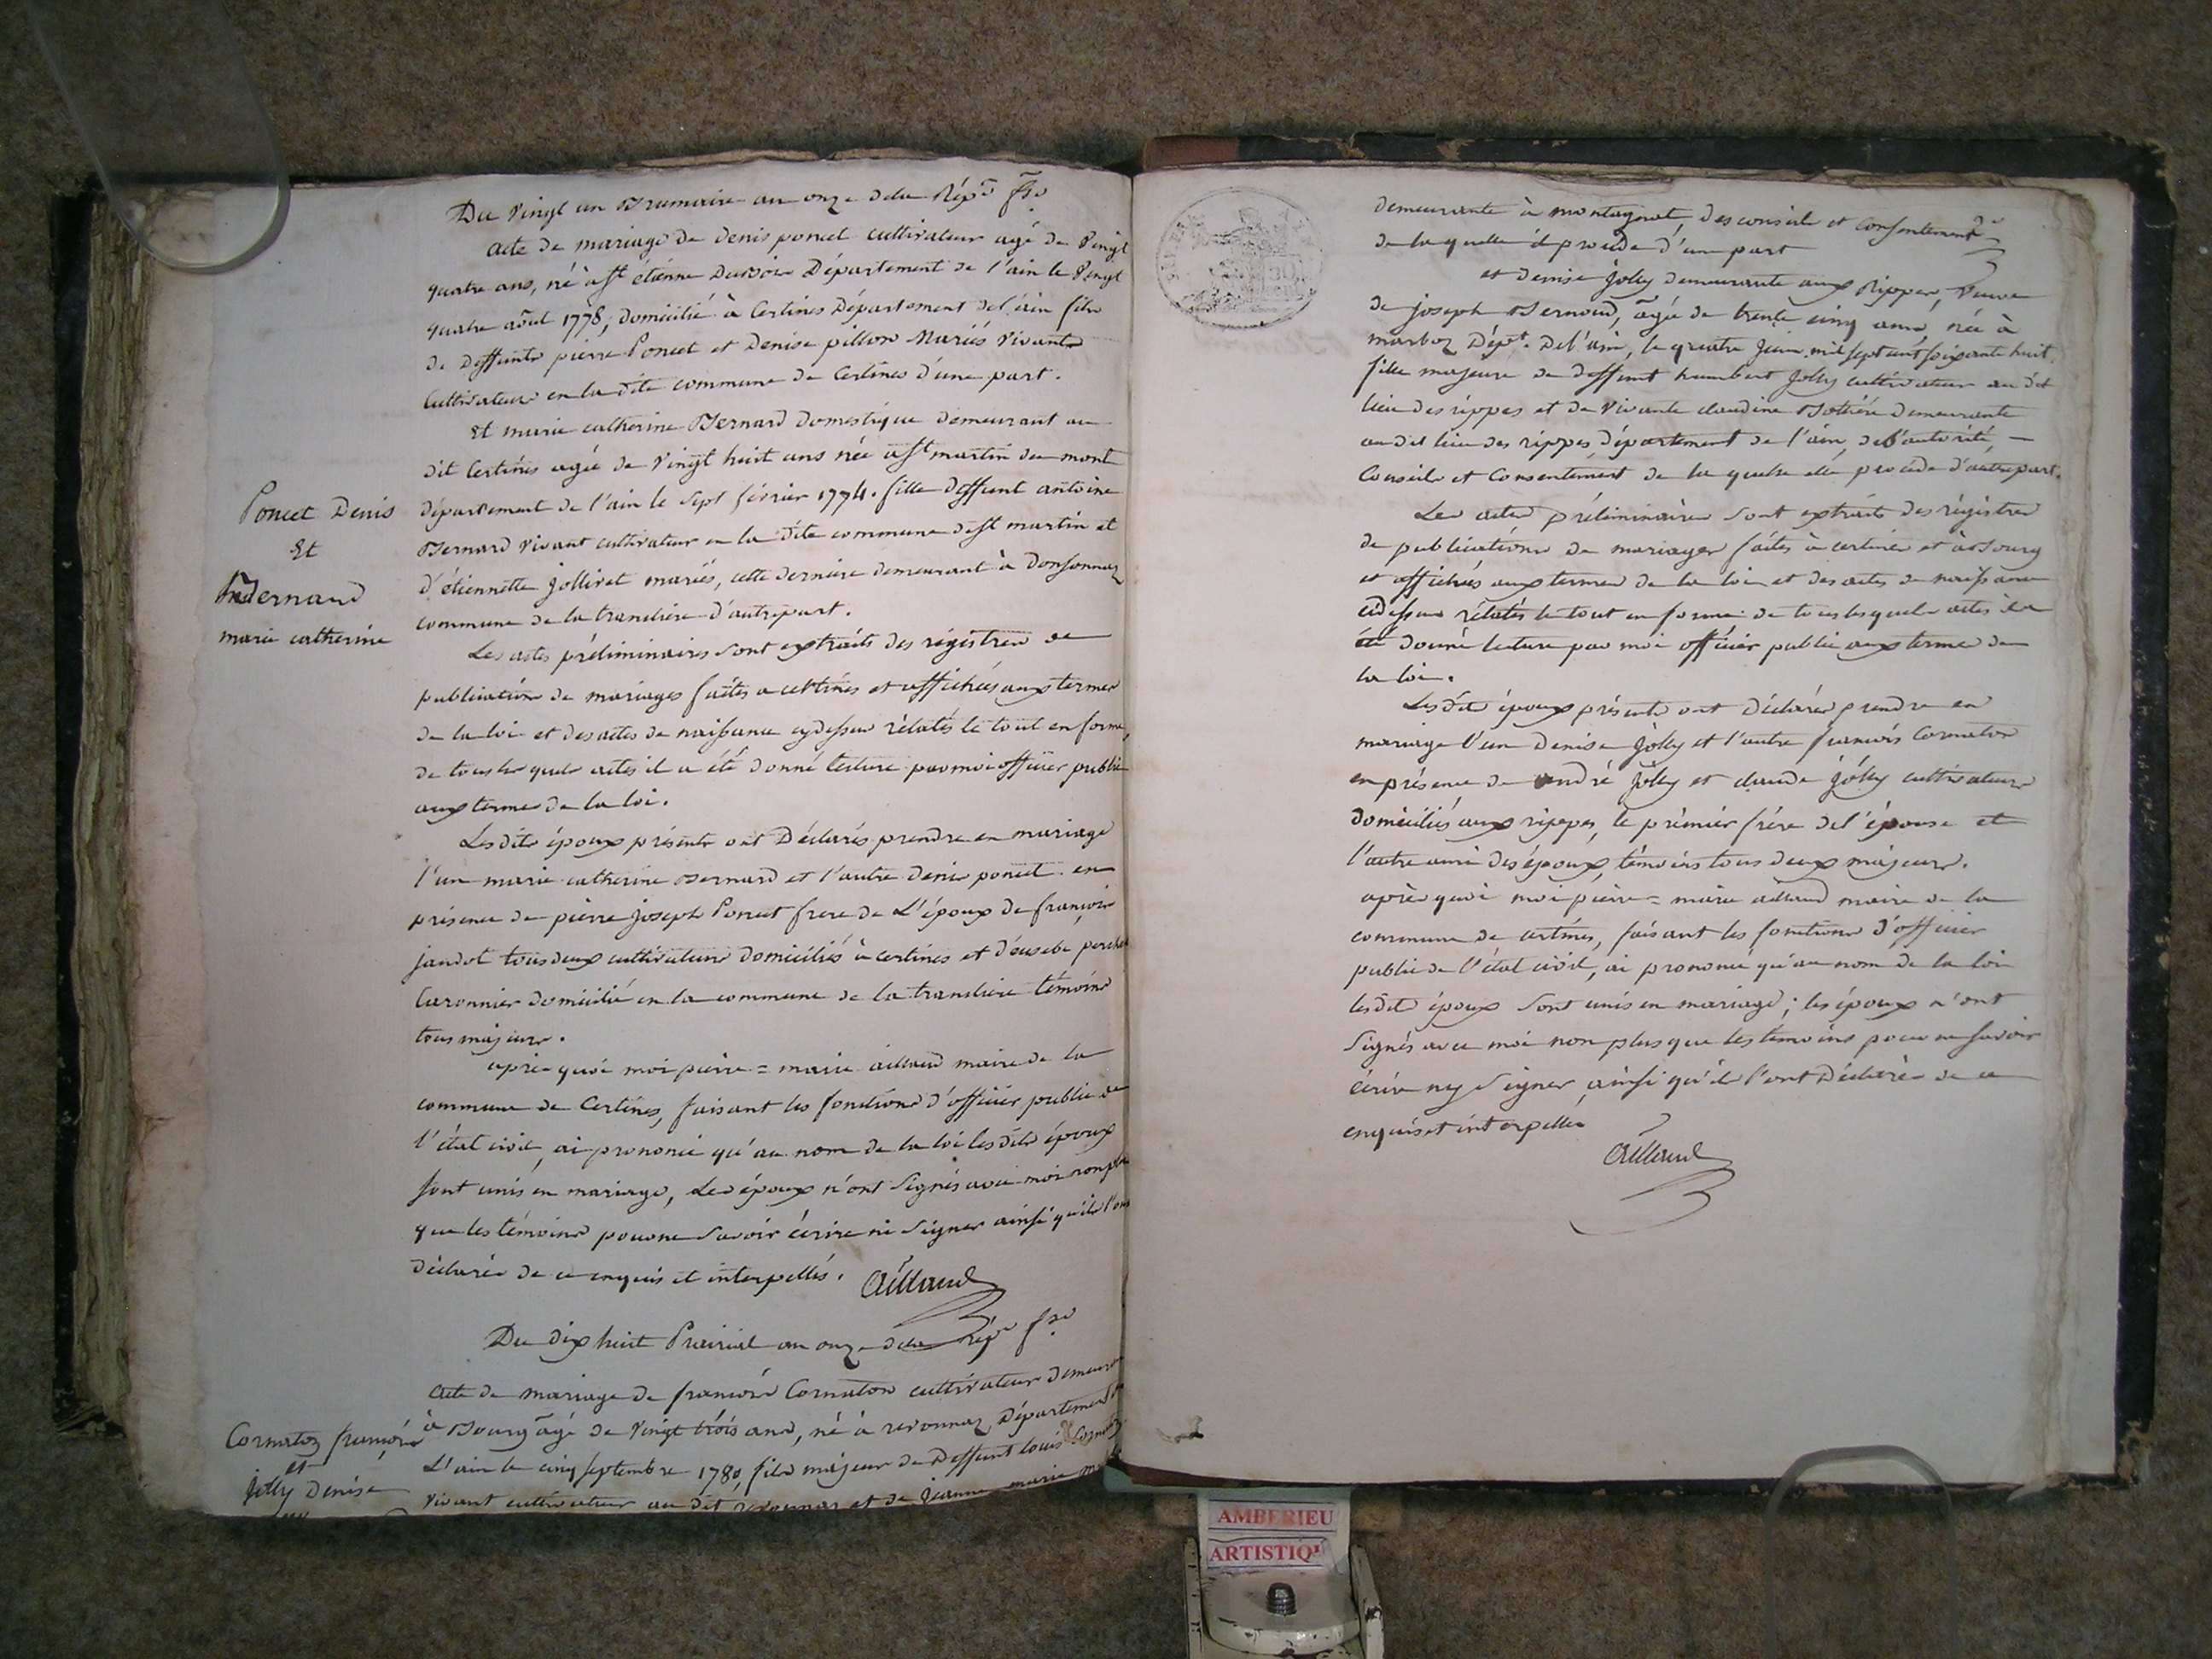 Du vingt un Brumaire an onze de la Rép.e f.se
acte de mariage de denis poncet cultivateur agé de vingt
quatre ans, né à st étiénne Dubois Département de l'ain le vingt
quatre août 1778, domicilié à Certines Département de l'ain fils
de deffunts pierre Poncet et Denise pillon Mariés vivants
cultivateurs en la dite commune de Certines d'une part.
Et marie catherine Bernard domestique demeurant au
dit Certines agée de vingt huit ans née à st martin du mont
département de l'ain le sept février 1774. fille deffunt antoine
Bernard vivant cultivateur en la dite commune de st martin et
d'étiennette jollivet mariés, cette derniere demeurant à Donsonnas
commune de la tranclière d'autre part.
Poncet Denis
Et
Bernard
marie catherine
Les actes préliminaires sont extraits des régistres de
publications de mariages faites a certines et affichées aux termes
de la loi et des actes de naissance cydessus rélatés le tout en forme,
de tous les quels actes il a été donné lecture par moi officier public
aux termes de la loi.
Lesdits époux présents ont Déclarés prendre en mariage
l'un marie catherine Bernard et l'autre denis poncet en
présence de pierre joseph Poncet frere de L'époux de françois
jandot tous deux cultivateurs domiciliés à certines et d'éusebe
domicilié en la commune de la tranclière témoins
tous majeurs.
après quoi moi pierre = marie aillaud maire de la
commune de Certines, faisant les fonctions d'officier public de
l'état civil, ai prononcé qu'au nom de la loi les dits époux
sont unis en mariage, Les époux n'ont signés avec moi non plus
que les témoins pour ne savoir écrire ni signer ainsi qu'ils l'ont
déclarés de ce enquis et interpellés. Aillaud
Du dix huit Prairial an onze de la rép.e f.se
acte de mariage de françois Cornaton cultivateur demeurant
à Bourg âgé de vingt trois ans, né à revonnaz Département de
L'ain le cinq septembre 1780, fils majeur de Deffunt louis Cornaton
vivant cultivateur au dit revonnas et de jeanne marie
Cornaton françois
et
jolly Denise
demeurante à montagnat, des conseils et consentement
de la quelle il procède d'un part
et denise jolly demeurante aux Rippes, veuve
de joseph Bernoud, âgée de trente cinq ans, née à
marboz Dépt. de l'ain, le quatre juin mil sept cent soixante huit,
fille majeure de deffunt humbert jolly cultivateur au dit
lieu des rippes et de vivante claudine demeurante
au dit lieu des rippes, département de l'ain, de l'autorité,
Conseils et Consentement de la quelle elle procède d'autre part.
Les actes préliminaires sont extraits des régistres
de publications de mariages faites à certines et à Bourg
et affichées aux termes de la loi et des actes de naissance
cidessus rélatés le tout en forme de tous lesquels actes il a
été donné lecture par moi officier public aux termes de
la loi.
Lesdits époux présents ont déclarés prendre en
mariage l'un Denise jolly et l'autre françois Cornaton
en présence de andré jolly et claude jolly cultivateurs
domiciliés aux rippes, le prémier frère de l'épouse et
l'autre ami des époux, témoins tous deux majeurs.
après quoi moi pierre = marie aillaud maire de la
commune de certines, faisant les fonctions d'officier
public de l'état civil, ai prononcé qu'au nom de la loi
lesdits époux sont unis en mariage ; les époux n'ont
signés avec moi non plus que les témoins pour ne savoir
écrire ny signer, ainsi qu'ils l'ont déclarés de ce
enquis et interpellés
Aillaud
AMBERIEU
ARTISTIQU